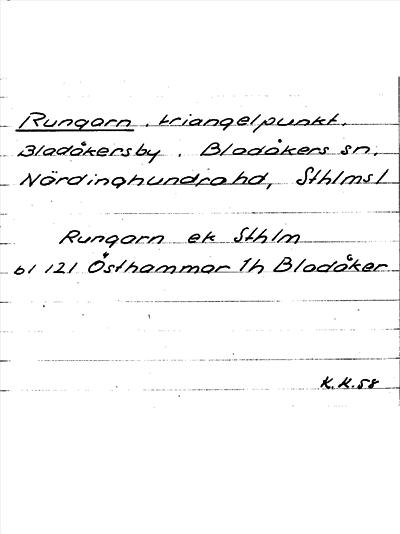 Rungarn. triangelpunkt.
Bladåkersby. Bladåkers sn.
Närdinghundra hd, Sthlms l
Rungarn ek Sthlm
bl 121 Östhammar 1h Bladåker
K.K.58